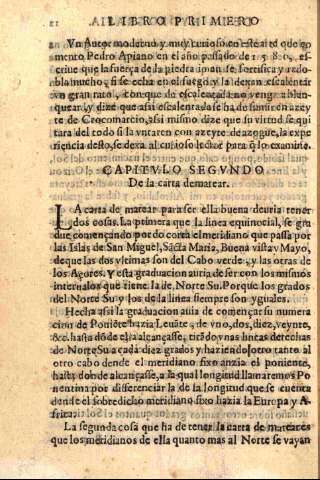 LIBRO PRIMERO
Vn Autor moderno y muy curioso en este arte que co
mento Pedro Apiano en el año passado de 1580, es-
criue que la fuerça de la piedra iman se fortifica y redo
bla mucho, si se echa en el fuego y la dexan escalentar
vn gran rato, con que de escalentada no venga a blan-
quear, y dize que assi escalentada se ha de matar en azeyte
de Crocomarcio, assi mismo dize que su virtud se qui
tara del todo si la vntaren con azeyte de azogue, la expe
riencia desto, se dexa al curioso lector para q̃ lo examine.
CAPITVLO SEGVNDO
De la carta demarear.
LA carta de marear para ser ella buena deuria tener
dos cosas. La primera que la linea equinocial, se gra
due començando por do corta el meridiano que passa por
las Islas de San Miguel, Sãcta Maria, Buena vista y Mayo,
de que las dos vltimas son del Cabo verde, y las otras de
los Açores. Y esta graduacion auria de ser con los mismos
internalos que tiene la de Norte Su. Porque los grados
del Norte Su y los de la linea siempre son yguales.
Hecha assi la graduacion auia de começar su numero
cion de Poniẽte hazia Leuãte, de vno, dos, diez, veynte,
&c. hasta dõde ella alcançasse, tirãdo vnas lineas derechas
de Norte Su a cada diez grados y haziendo lo otro tanto al
otro cabo dende el meridiano fixo anzia el poniente,
hasta donde alcançasse, a la qual longitud llamaremos Po
nentina por differenciar la de la longitud que se cuenta
dende el sobredicho meridiano fixo hazia la Europa y A-
frica.
La segunda cosa que ha de tener la carta de marear es
que los meridianos de ella quanto mas al Norte se vayan